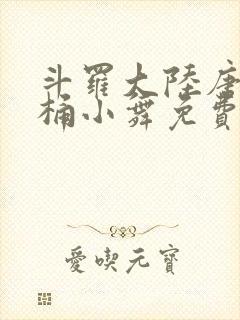 斗羅大陸唐
桶小舞免費
愛喫元寶